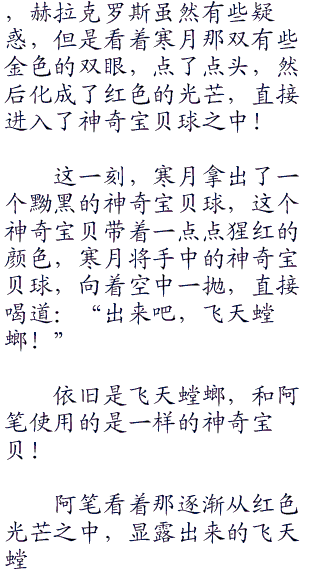 ，赫拉克罗斯虽然有些疑
惑，但是看着寒月那双有些
金色的双眼，点了点头，然
后化成了红色的光芒，直接
进入了神奇宝贝球之中！
这一刻，寒月拿出了一
个黝黑的神奇宝贝球，这个
神奇宝贝带着一点点猩红的
颜色，寒月将手中的神奇宝
贝球，向着空中一抛，直接
喝道：“出来吧，飞天螳
螂！”
依旧是飞天螳螂，和阿
笔使用的是一样的神奇宝
贝！
阿笔看着那逐渐从红色
光芒之中，显露出来的飞天
螳